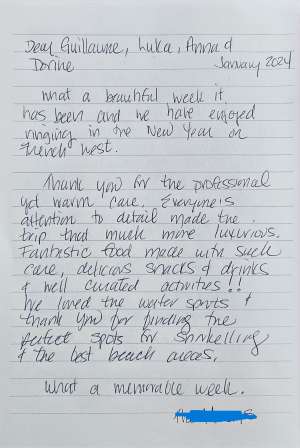 Dear Guillaume, Luka, Anna &
Dorine
January 2024
What a beautiful week it
has been and we have enjoyed
ringing in the New Year on
French West.
Thank you for the professional
yet warm care. Everyone's
attention to detail made the
trip that much more luxurious.
Fantastic food made with such
care, delicious snacks & drinks
& well curated activities!!
We loved the water sports &
thank you for finding the
perfect spots for snorkelling
& the best beach areas.
What a memorable week.